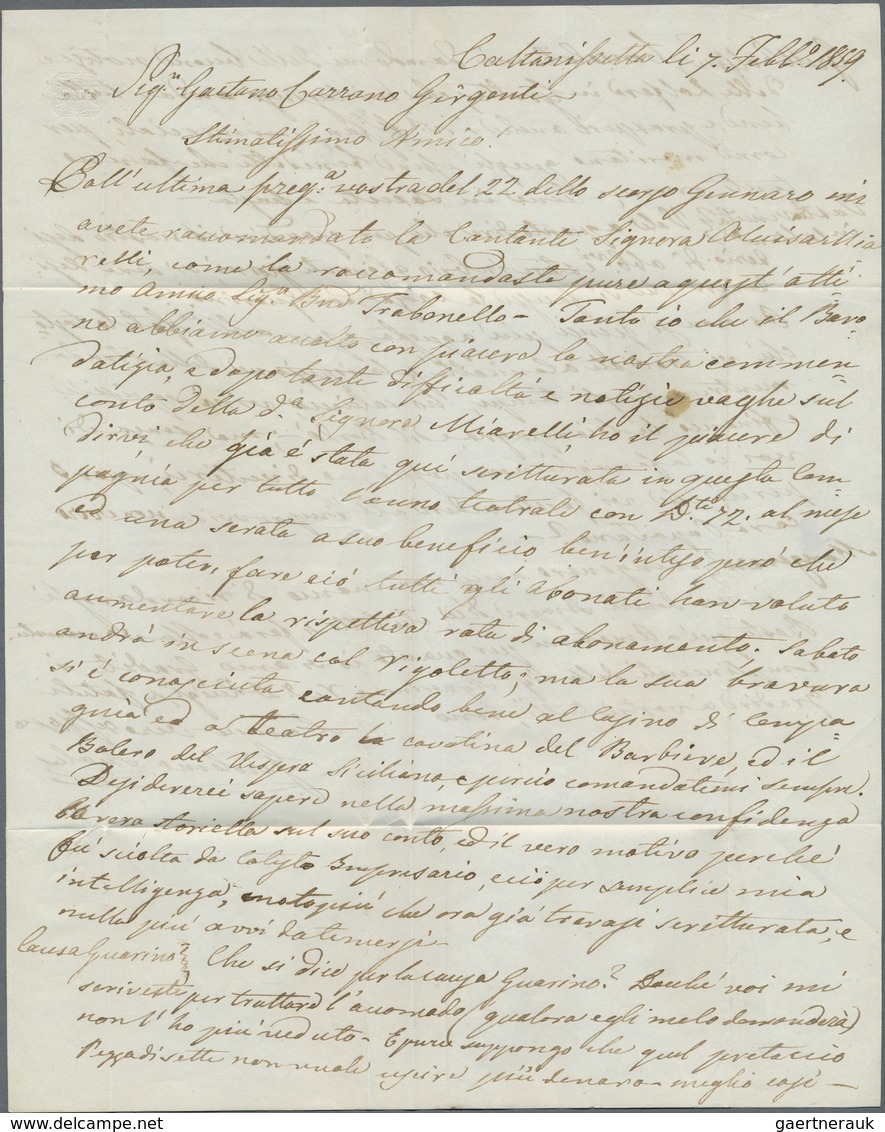 Caltanissetta li 7. Febb.o 1859
Sig.r Gaetano Carrano Girgenti
Stimatissimo Amico
Coll'ultima preg.a vostra del 22 dello scorso Gennaro mi
avete raccomandato la Cantante Signora Miarelli
relli, come la raccomandaste pure a quest'otti=
mo Amico Sig.r Trabonello – Tanto io che il Baro
ne abbiamo accolto con piacere la vostra commen=
datizia, e dopo tante difficoltà e notizie vaghe sul
conto della d.a Signora Miarelli ho il piacere di
dirvi che già è stata qui scritturata in questa Com=
pagnia per tutto l'anno teatrale con D.ti 72. al mese
ed una serata a suo beneficio ben'inteso però che
per poter fare ciò tutti gli abonati han voluto
aumentare la rispettiva rata di abonamento; Sabato
andrà in scena col Rigoletto; ma la sua bravura
si è conosciuta cantando bene al Casino di Compa=
gnia ed a teatro la cavatina del Barbiere, ed il
Bolero del Vespro Siciliano, e perciò comandatemi sempre.
Desidererei sapere nella massima nostra confidenza
la vera storiella sul suo conto, ed il vero motivo perchè
fu sciolta da Impresario, e ciò per semplice mia
intelligenza, molto più che ora già trovasi scritturata, e
nulla più avvi da temersi –
Causa Guarino? Che si dice per la causa Guarino? Dacchè voi mi
scriveste per trattare l'accomodo (qualora egli me lo domanderà)
non l'ho più veduto – Eppure suppongo che quel pretaccio
Pezza di sette non vuole uscire più denaro – meglio così –
gaertnerauk